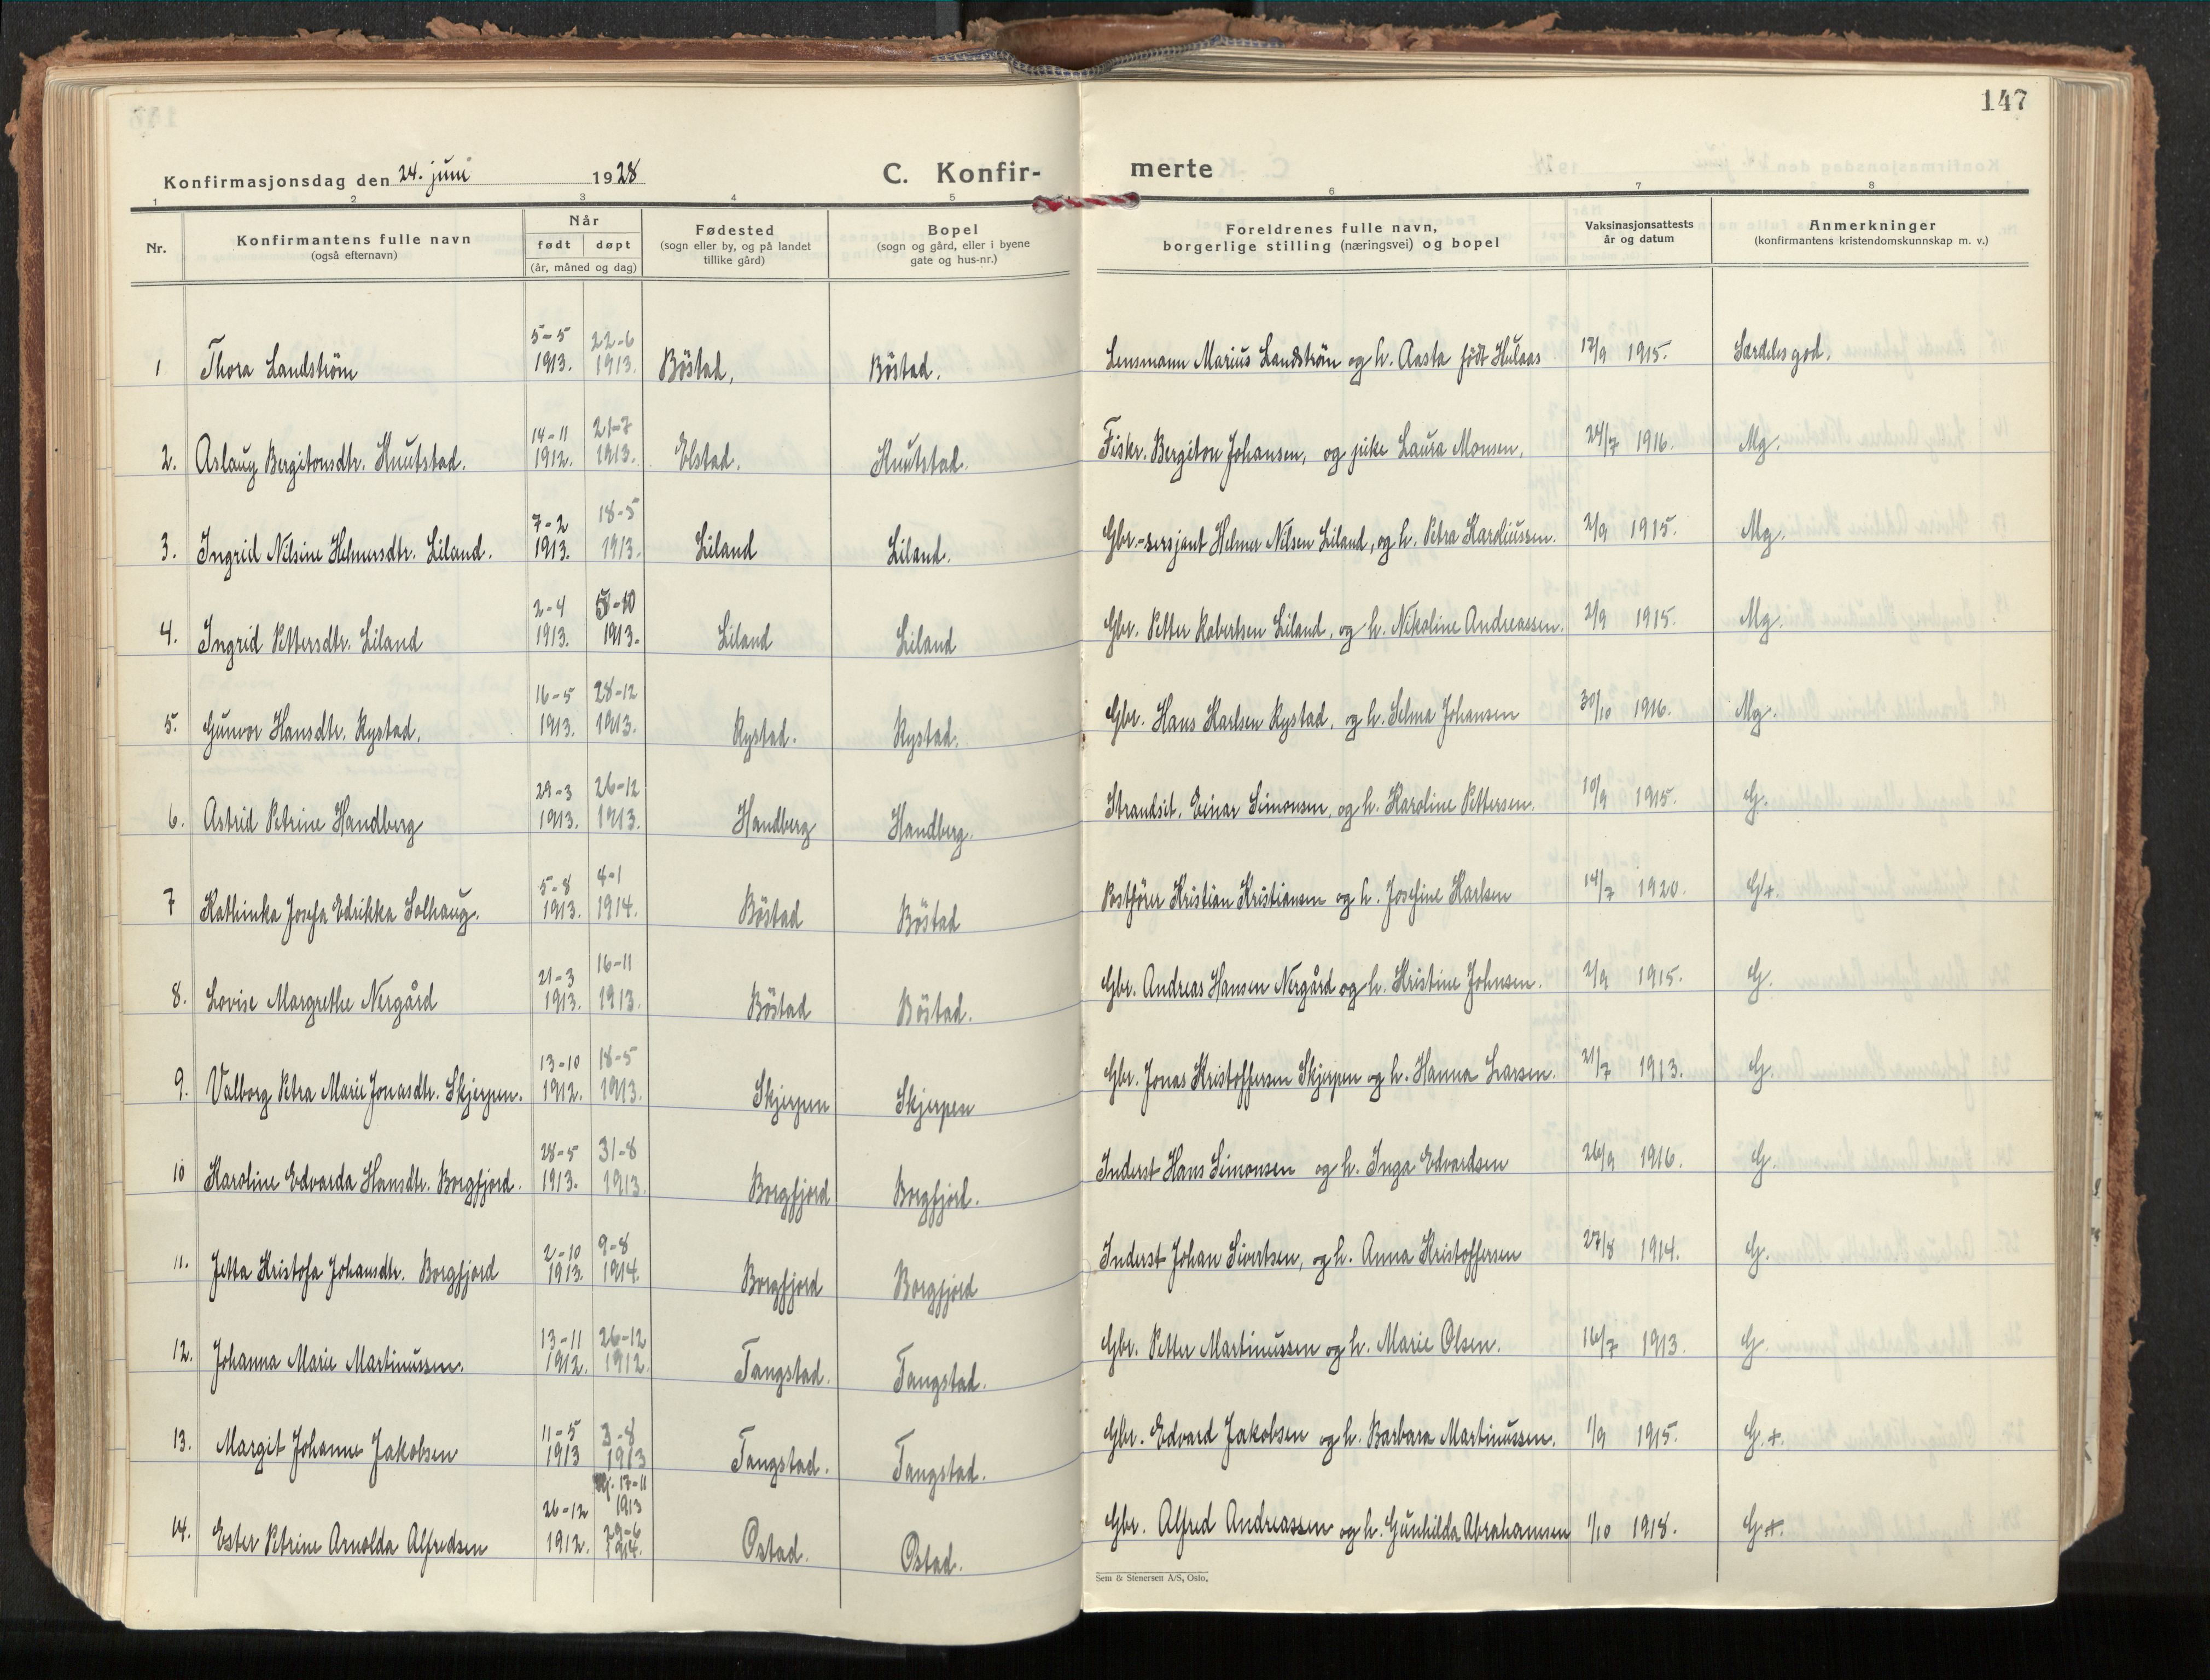 147
Konfirmasjonsdag den 24. juni 1928 C. Konfir- merte
1 2 3 4 5 6 7 8
Nr. Konfirmantens fulle navn (også efternavn) Når født døpt (år, måned og dag) Fødested (sogn eller by, og på landet tillike gård) Bopel (sogn og gård, eller i byene gate og hus-nr.) Foreldrenes fulle navn, borgerlige stilling (næringsvei) og bopel Vaksinasjonsattests år og datum Anmerkninger (konfirmantens kristendomskunnskap m. v.)
1 Thora Landstrøm 5-5 1913. 22-6 1913. Böstad, Böstad. Lensmann Marius Landstrøm og h. Aasta født Hulaas 17/9 1915. Særdeles god.
2. Aslaug Bergitonsdtr. Knutstad. 14-11 1912. 21-7 1913. Elstad. Knutstad. Fiskr. Bergiton Johansen, og pike Laura Monsen. 24/7 1916. Mg.
3. Ingrid Nilsine Helmersdtr. Liland. 7-2 1913. 18-5 1913. Liland Liland. Gbr.-sersjant Helmer Nilsen Liland, og h. Petra Karoliussen. 2/9 1915. Mg.
4. Ingrid Pettersdtr. Liland 2-4 1913. 5-10 1913. Liland Liland Gbr. Petter Robertsen Liland, og h. Nikoline Andreassen. 2/9 1915. Mg.
5. Gunvor Hansdtr. Rystad. 16-5 1913. 28-12 1913. Rystad. Rystad. Gbr. Hans Karlsen Rystad, og h. Selma Johansen 30/10 1916. Mg.
6. Astrid Petrine Handberg 29-3 1913. 26-12 1913. Handberg Handberg. Strandsit. Einar Simonsen, og h. Karoline Pettersen. 10/9 1915. G.
7 Kathinka Josefa Edrikka Solhaug. 5-8 1913. 4-1 1914. Böstad Böstad Postfører Kristian Kristiansen og h. Josefine Karlsen 14/7 1920. G+.
8. Lovise Margrethe Nergård 21-3 1913. 16-11 1913. Böstad Böstad. Gbr. Andreas Hansen Nergård og h. Kristine Johnsen. 2/9 1915. G.
9. Valborg Petra Marie Jonasdtr. Skjerpen. 13-10 1912. 18-5 1913. Skjerpen Skjerpen Gbr. Jonas Kristoffersen Skjerpen og h. Hanna Larsen. 21/7 1913. G.
10 Karoline Edvarda Hansdtr. Borgfjord. 28-5 1913. 31-8 1913. Borgfjord Borgfjord. Inderst Hans Simonsen og h. Inga Edvardsen 26/9 1916. G.
11. Jetta Kristofa Johansdtr. Borgfjord 2-10 1913. 9-8 1914. Borgfjord Borgfjord Inderst Johan Sivertsen, og h. Anna Kristoffersen 27/8 1914. G.
12. Johanna Marie Martinussen. 13-11 1912. 26-12 1912. Tangstad. Tangstad. Gbr. Petter Martinussen og h. Marie Olsen. 16/7 1913. G.
13. Margit Johanne Jakobsen 11-5 1913 3-8 1913 Tangstad. Tangstad. Gbr. Edvard Jakobsen og h. Barbara Martinussen. 1/9 1915. G.+.
14. Ester Petrine Arnolda Alfredsen 26-12 1912. 17-11 1913 29-6 1914. Ostad. Ostad. Gbr. Alfred Andreassen og h. Gunhilda Abrahamsen 1/10 1918. G+.
Sem & Stenersen A/S, Oslo.